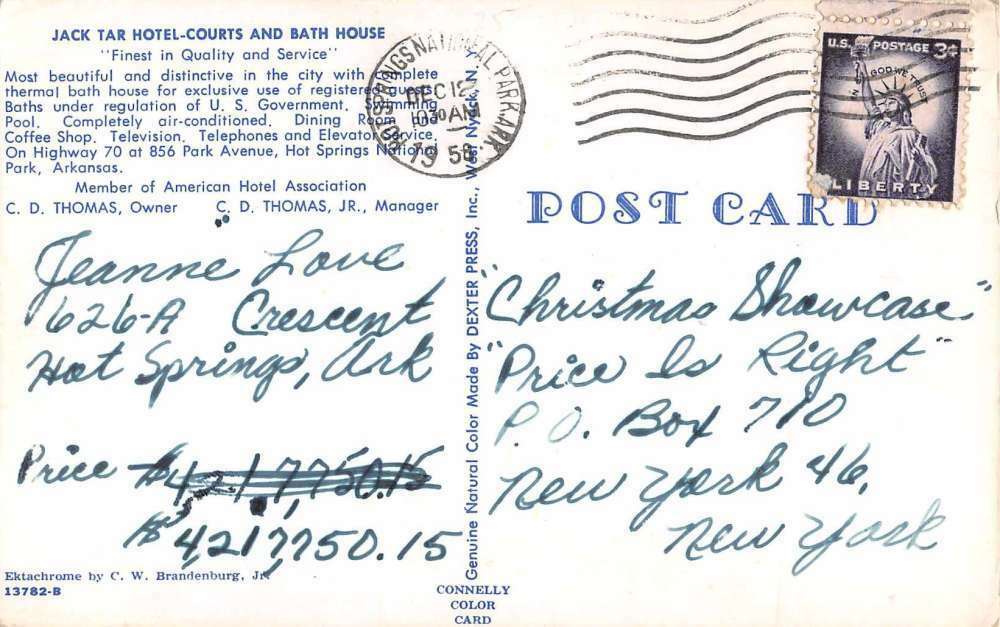 JACK TAR HOTEL-COURTS AND BATH HOUSE
"Finest in Quality and Service"
Most beautiful and distinctive in the city with complete
thermal bath house for exclusive use of registered guests.
Baths under regulation of U. S. Government. Swimming
Pool. Completely air-conditioned. Dining Room and
Coffee Shop. Television. Telephones and Elevator Service.
On Highway 70 at 856 Park Avenue, Hot Springs National
Park, Arkansas.
Member of American Hotel Association
C. D. THOMAS, Owner C. D. THOMAS, JR., Manager
Jeanne Love
626-A Crescent
Hot Springs, Ark
Price $4217,750.15
$4217750.15
Ektachrome by C. W. Brandenburg, Jr.
13782-B
Genuine Natural Color Made By DEXTER PRESS, Inc., West Nyack, N. Y.
CONNELLY
COLOR
CARD
HOT SPRINGS NATIONAL PARK, ARK.
DEC 12
1030 AM
1958
U.S. POSTAGE 3¢
IN GOD WE TRUST
LIBERTY
POST CARD
"Christmas Showcase"
"Price Is Right"
P.O. Box 710
New York 46,
New York